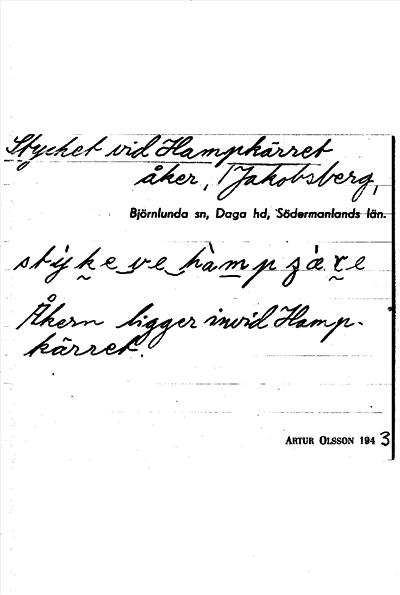 Stycket vid Hampkärret
åker, Jakobsberg,
Björnlunda sn, Daga hd, Södermanlands län.
Åkern ligger invid Hamp-
kärret.
ARTUR OLSSON 1943